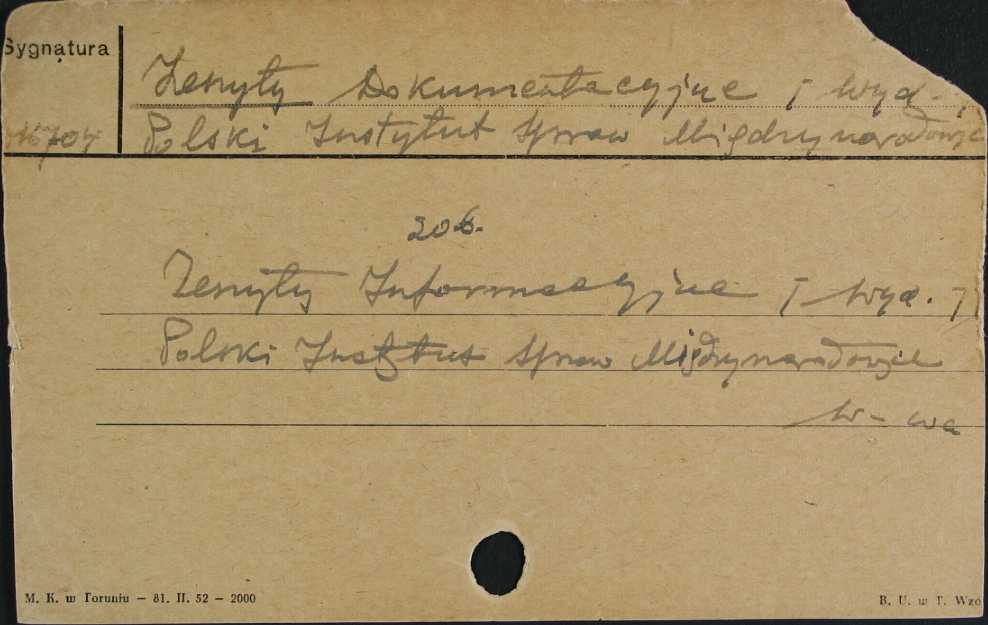 Sygnatura
Zeszyty Dokumentacyjne [wyd.]
16704 Polski Instytut Spraw Międzynarodowych
206.
Zeszyty Informacyjne [wyd.]
Polski Instytut Spraw Międzynarodowych
W-wa
M. K. w Toruniu — 81. II. 52 — 2000
B. U. w T. Wzó